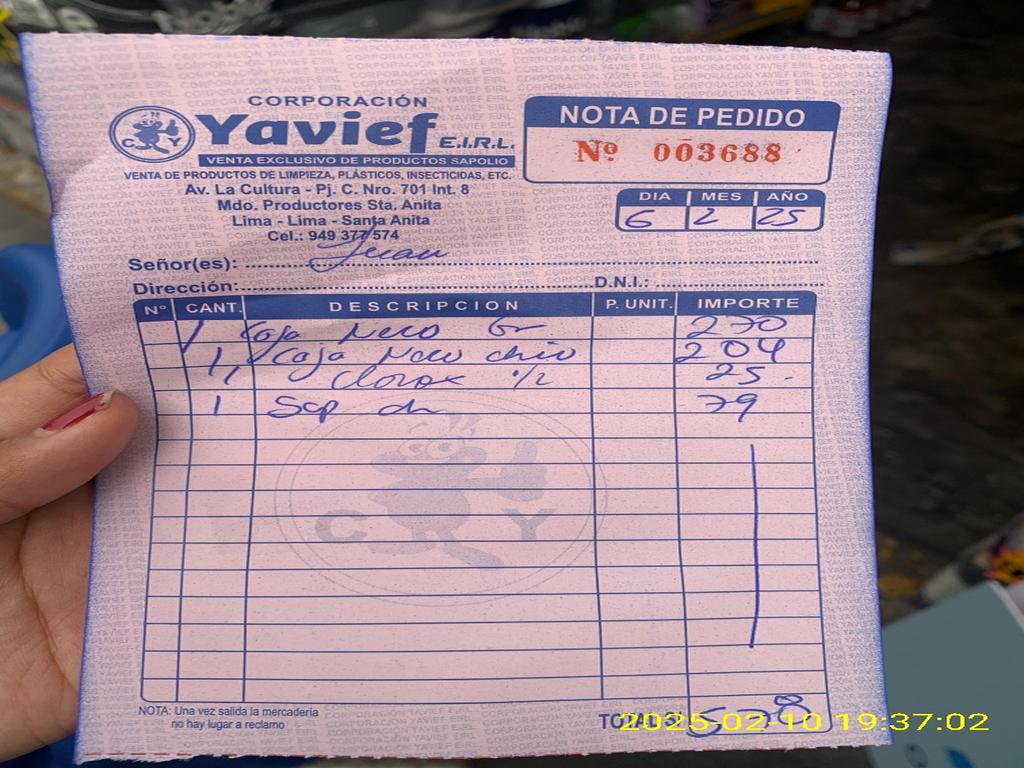 CORPORACIÓN
Yavief E.I.R.L.
C Y
VENTA EXCLUSIVO DE PRODUCTOS SAPOLIO
VENTA DE PRODUCTOS DE LIMPIEZA, PLÁSTICOS, INSECTICIDAS, ETC.
Av. La Cultura - Pj. C. Nro. 701 Int. 8
Mdo. Productores Sta. Anita
Lima - Lima - Santa Anita
Cel.: 949 377 574
NOTA DE PEDIDO
Nº 003688
DIA MES AÑO
6 2 25
Señor(es): Juan
Dirección: D.N.I.:
Nº CANT. DESCRIPCION P. UNIT. IMPORTE
1 Caja Neco Gr 270
1 Caja Neco chio 204
1 Clorox 1/2 25
1 Sap ch 79
C Y
NOTA: Una vez salida la mercadería
no hay lugar a reclamo
TOTAL 578
2025-02-10 19:37:02